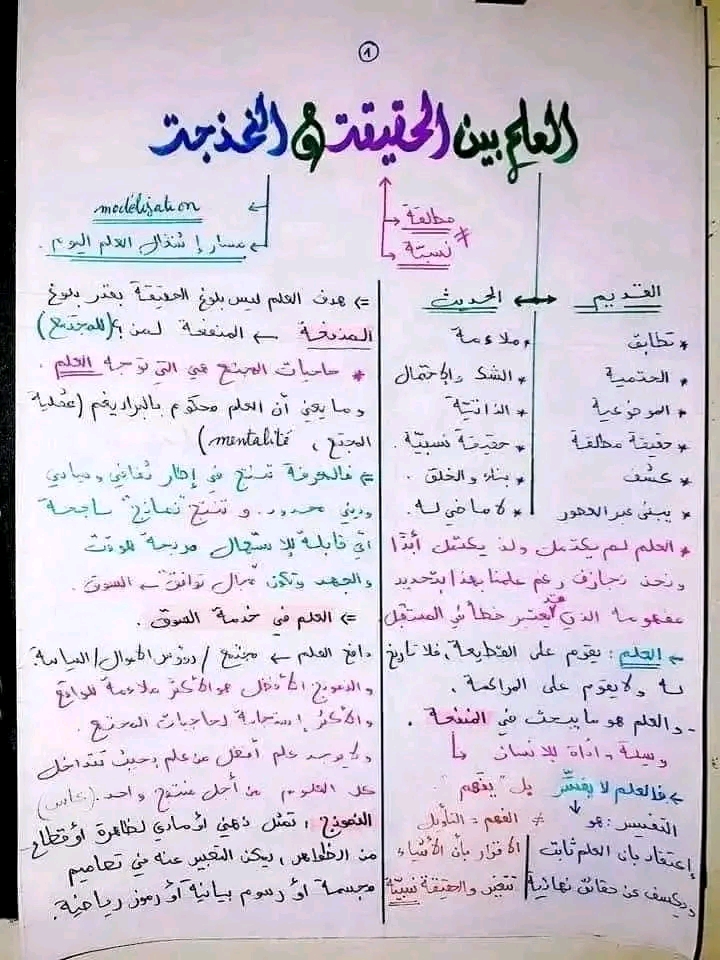 1
العلم بين الحقيقة و النمذجة
مطلقة
نسبية
القديم
الحديث
* تطابق
* ملاءمة
* الحتمية
* الشك والاحتمال
* الموضوعية
* الذاتية
* حقيقة مطلقة
* حقيقة نسبية.
* كشف
* بناء والخلق.
* يبنى عبر العصور
* لا ماضي له.
* العلم لم يكتمل ولن يكتمل أبدًا
ونحن نجازف رغم علمنا بهذا بتحديد
مفهومه الذي قد يعتبر خطأ في المستقبل
← العلم: يقوم على القطيعة، فلا تاريخ
له ولا يقوم على المراكمة.
- والعلم هو ما يبحث في المنفعة.
وسيلة وأداة للإنسان
← فالعلم لا يفسّر بل "يفهم".
التفسير: هو ≠ الفهم = التأويل
إعتقاد بأن العلم ثابت
ويكشف عن حقائق نهائية
الاقرار بأن الأشياء
تتغير والحقيقة نسبيّة
modélisation
مسار إشتغال العلم اليوم.
⇐ هدف العلم ليس بلوغ الحقيقة بقدر بلوغ
المنفعة ← المنفعة لمن؟ (للمجتمع)
* حاجيات المجتمع هي التي توجه العلم.
وما يعني أن العلم محكوم بالبراديغم (عقلية
المجتمع، mentalité)
⇐ فالمعرفة تنتج في إطار ثقافي وسياسي
وديني محدود. وتنتج "نماذج" ناجحة
أي قابلة للاستعمال مربحة للوقت
والجهد وتكون مجال توافق ← السوق.
⇐ العلم في خدمة السوق.
دافع العلم ← مجتمع / رؤوس الأموال / السياسة.
والنموذج الأفضل هو الأكثر ملاءمة للواقع
والأكثر إستجابة لحاجيات المجتمع.
ولا يوجد علم أفضل من علم بحيث تتداخل
كل العلوم من أجل منتوج واحد.
النموذج: تمثل ذهني أو مادي لظاهرة أو قطاع
من الظواهر، يمكن التعبير عنه في تصاميم
مجسمة أو رسوم بيانية أو رموز رياضية.